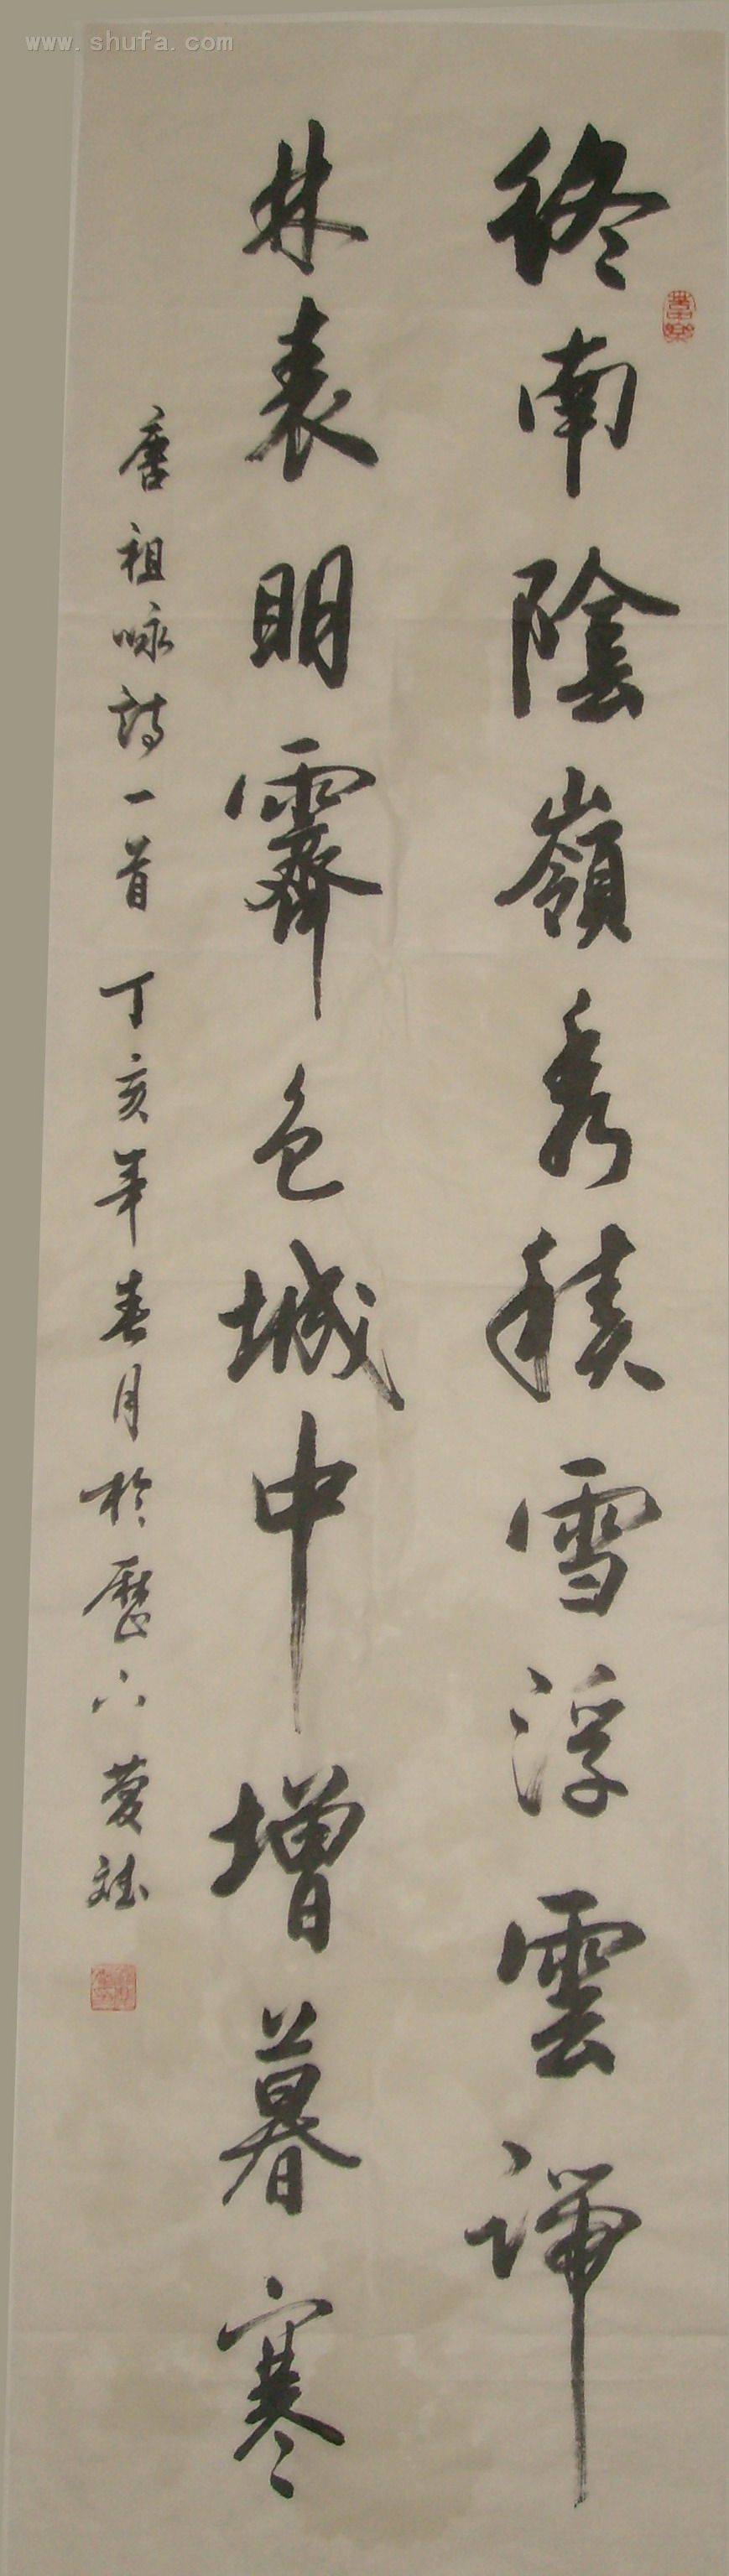 www.shufa.com
終南陰嶺秀積雪浮雲端
林表明霽色城中增暮寒
唐祖咏詩一首 丁亥年春月於歷下 斌